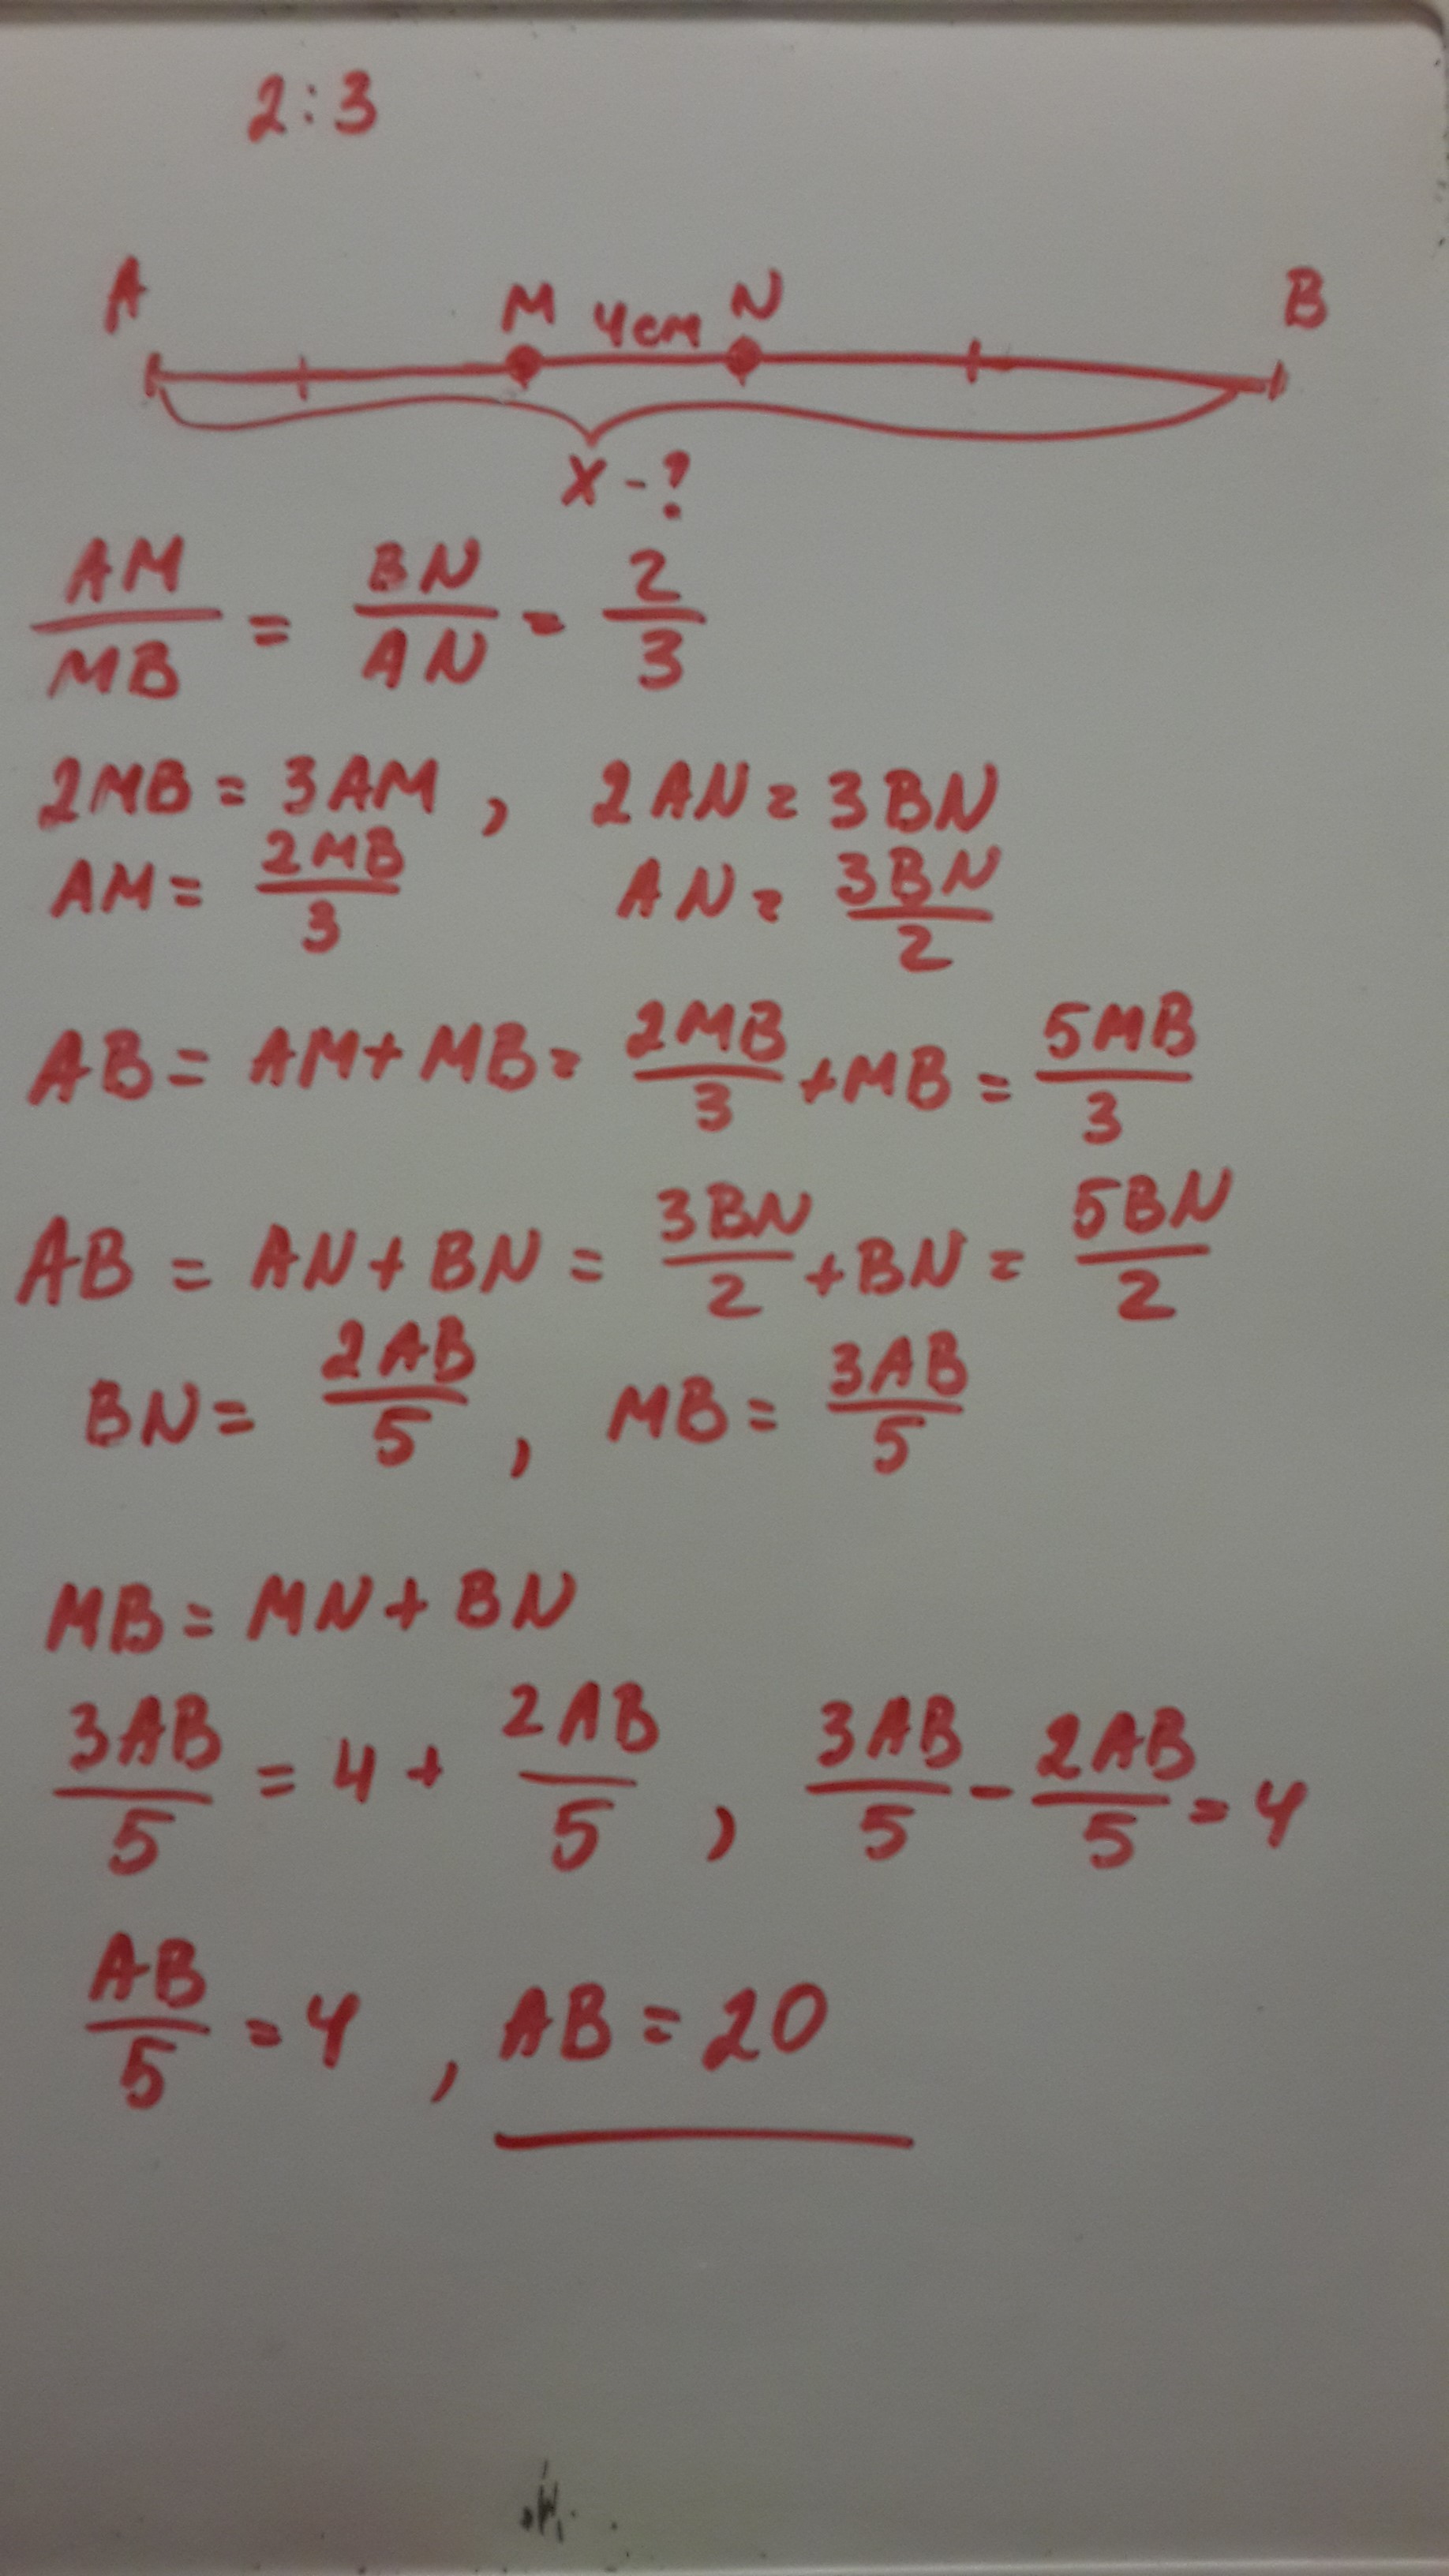 2:3
A M 4см N B
X-?
AM/MB = BN/AN = 2/3
2MB = 3AM, 2AN = 3BN
AM = 2MB/3 AN = 3BN/2
AB = AM + MB = 2MB/3 + MB = 5MB/3
AB = AN + BN = 3BN/2 + BN = 5BN/2
BN = 2AB/5, MB = 3AB/5
MB = MN + BN
3AB/5 = 4 + 2AB/5, 3AB/5 - 2AB/5 = 4
AB/5 = 4, AB = 20